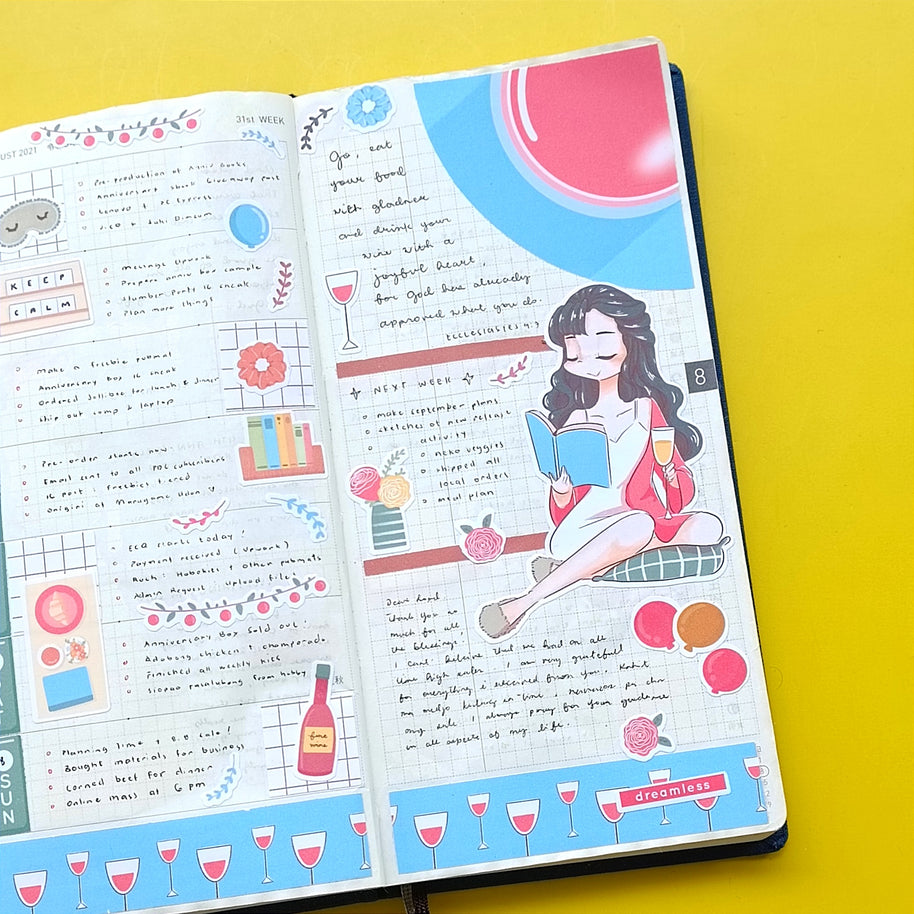 UST 2021
31st WEEK
Pre-production of Anniv Books
Anniversary ebook Giveaway Post
Lenovo &
KEEP
CALM
Message Upwork
Prepare anniv box sample
Slumber Party IG sneak
Plan more things
Make a freebie pubmat
Anniversary Box IG sneak
Ordered Jollibee for lunch & dinner
Ship out comp & laptop
Pre-order starts now!
Email sent to all subscribers
IG post : Freebies tiered
Onigiri at Marugame Udon
ECQ starts today!
Payment received (Upwork)
+ other pubmats
Admin Request: Upload files
Anniversary Box Sold out!
Adobong chicken & champorado
Finished all weekly kits
Siopao pasalubong from hubby
SUN
Planning time & 8.8 sale!
Bought materials for business
Corned beef for dinner
Online mass at 6 pm
fine
wine
Go, eat
your food
with gladness
and drink your
wine with a
joyful heart,
for God has already
approved what you do.
Ecclesiastes 9:7
NEXT WEEK
make September plans
sketches of new release
activity
neko veggies
shipped all
local orders
meal plan
8
Dear Lord,
Thank you so
much for all
the blessings.
I can't believe that we had an all
time high sales. I am very grateful
for everything I received from you. Kahit
may sale. I always pray for your guidance
in all aspects of my life.
dreamless